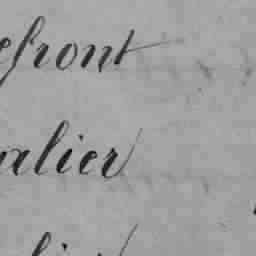 efront
valier